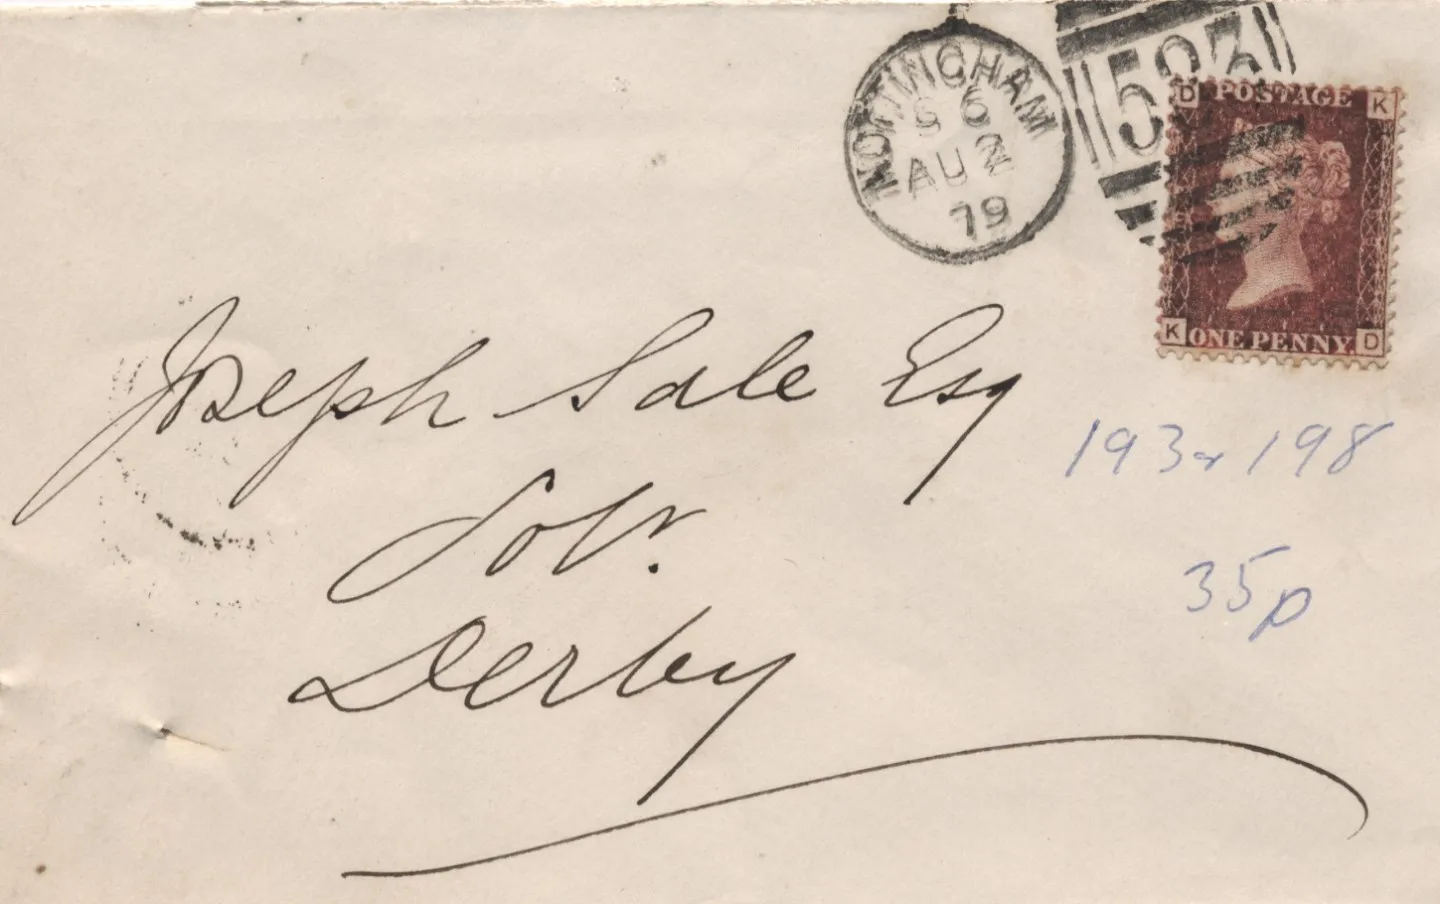 NOTTINGHAM
S 6
AU 2
79
583
D POSTAGE K
K ONE PENNY D
Joseph Sale Esq
Solr.
Derby
193 or 198
35p